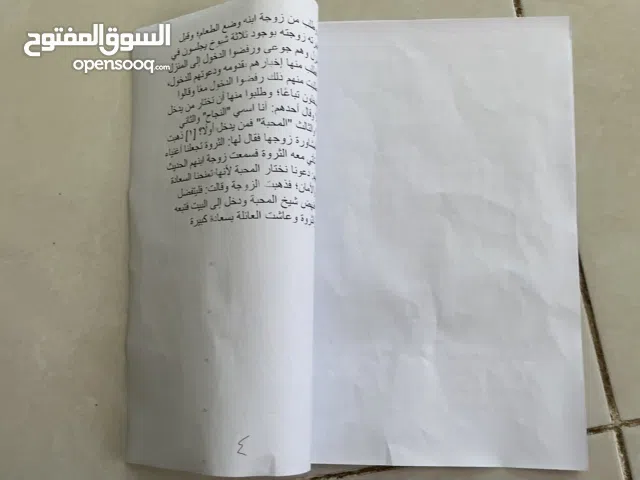 السوق المفتوح
opensooq.com
من زوجة ابنه وضع الطعام؛ وقبل
زوجته بوجود ثلاثة شيوخ يجلسون في
وهم جوعى ورفضوا الدخول إلى المنزل
منها إخبارهم بقدومه ودعوتهم للدخول،
منهم ذلك رفضوا الدخول معًا وقالوا
تباعًا؛ وطلبوا منها أن تختار من يدخل
وقال أحدهم: أنا اسمي "النجاح" والثاني
والثالث "المحبة" فمن يدخل أولًا؟ [١] ذهبت
زوجها فقال لها: الثروة تجعلنا أغنياء
معه الثروة فسمعت زوجة ابنهم الحديث
دعونا نختار المحبة لأنها تمنحنا السعادة
فذهبت الزوجة وقالت: فليتفضل
شيخ المحبة ودخل إلى البيت فتبعه
وعاشت العائلة بسعادة كبيرة
٤